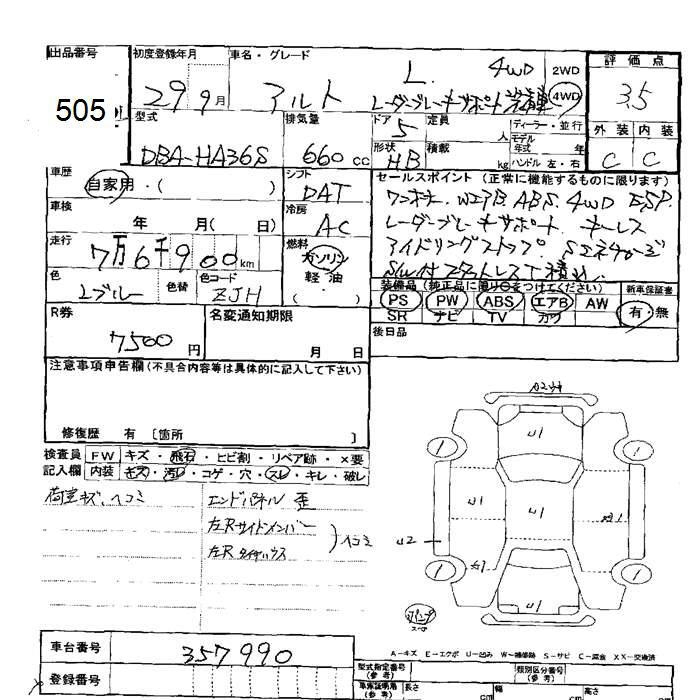 出品番号 初度登録年月 車名・グレード 評価点
505 29 9月 アルト L 4WD 2WD 4WD 3.5
レーダーブレーキサポート装着車
型式 排気量 ドア 定員 ディーラー・並行 外装 内装
DBA-HA36S 660 cc 5 人 モデル年式 年 C C
形状 積載 kg ハンドル 左・右
HB
車歴 シフト セールスポイント (正常に機能するものに限ります)
自家用・( ) DAT ワンオーナー. WエアB ABS. 4WD ESP.
車検 冷房 レーダーブレーキサポート. キーレス
年 月( 日) AC アイドリングストップ.
走行 燃料
7万6千900km ガソリン S/W付スタットレスT積込.
色 色替 色コード 軽油 装備品 (純正品に限り○をつけてください) 新車保証書
Lブルー ZJH ( ) PS PW ABS エアB AW 有・無
SR ナビ TV カワ
R券 名変通知期限 後日品
7500円 月 日
注意事項申告欄 (不具合内容等は具体的に記入して下さい)
修復歴 有 〔箇所 〕
検査員 FW キズ・飛石・ヒビ割・リペア跡・×要
記入欄 内装 キズ・汚レ・コゲ・穴・スレ・キレ・破レ
荷室キズ、ヘコミ エンドパネル 歪
左Rサイドメンバー
左Rタイヤハウス ヘコミ
U1
1 1
U1 U1
U2
1 1
U1
パンク
A-キズ E-エクボ U-凹み W-補修跡 S-サビ C-腐食 XX-交換済
車台番号 357990 型式指定番号(参考) 類別区分番号(参考)
登録番号 車庫証明用(参考) 長さ cm 幅 cm 高さ cm